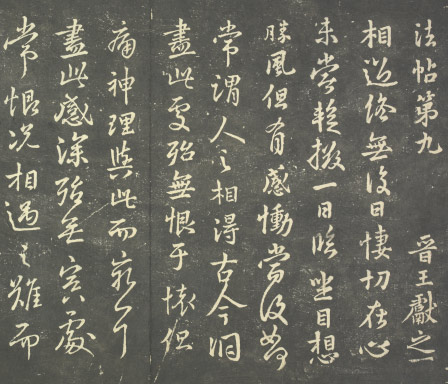 法帖第九 晉王獻之
相過終無復日悽切在心
未嘗暫撥一日臨坐目想
勝風但有感慟當復如何
常謂人之相得古今洞
盡此處殆無恨于懷但
痛神理與此而窮耳
盡此感深殆無冥處
常恨況相遇之難而